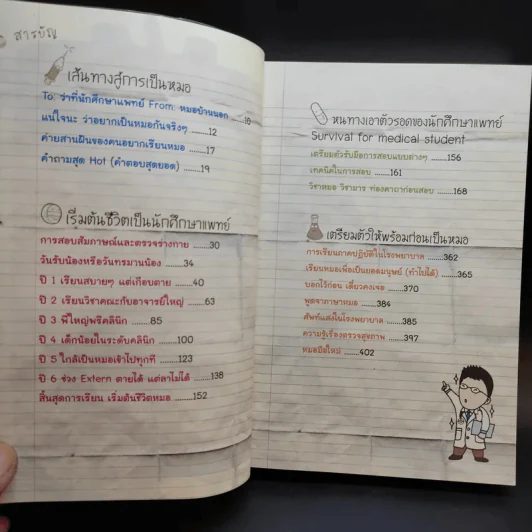 สารบัญ
เส้นทางสู่การเป็นหมอ
To: ว่าที่นักศึกษาแพทย์ From: หมอบ้านนอก ......10
แน่ใจนะ ว่าอยากเป็นหมอกันจริงๆ .......12
ค่ายสานฝันของคนอยากเรียนหมอ .......17
คำถามสุด Hot (คำตอบสุดยอด) .......19
เริ่มต้นชีวิตเป็นนักศึกษาแพทย์
การสอบสัมภาษณ์และตรวจร่างกาย .......30
วันรับน้องหรือวันทรมานน้อง .......34
ปี 1 เรียนสบายๆ แต่เกือบตาย .......40
ปี 2 เรียนวิชาคณะกับอาจารย์ใหญ่ .......63
ปี 3 พี่ใหญ่พรีคลินิก .......85
ปี 4 เด็กน้อยในระดับคลินิก .......100
ปี 5 ใกล้เป็นหมอเข้าไปทุกที .......123
ปี 6 ช่วง Extern ตายได้ แต่ลาไม่ได้ .......138
สิ้นสุดการเรียน เริ่มต้นชีวิตหมอ .......152
หนทางเอาตัวรอดของนักศึกษาแพทย์
Survival for medical student
เตรียมตัวรับมือการสอบแบบต่างๆ .......156
เทคนิคในการสอบ .......161
วิชาหมอ วิชามาร ท่องคาถาก่อนสอบ .......168
เตรียมตัวให้พร้อมก่อนเป็นหมอ
การเรียนภาคปฏิบัติในโรงพยาบาล .......362
เรียนหมอเพื่อเป็นยอดมนุษย์ (ทำไปได้) .......365
บอกไว้ก่อน เดี๋ยวคงเจอ .......370
พูดจาภาษาหมอ .......384
ศัพท์แสงในโรงพยาบาล .......385
ความรู้เรื่องตรวจสุขภาพ .......397
หมอมือใหม่ .......402